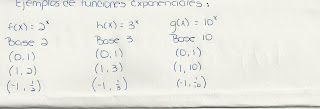 Ejemplos de funciones exponenciales:
f(x) = 2ˣ h(x) = 3ˣ g(x) = 10ˣ
Base 2 Base 3 Base 10
(0,1) (0,1) (0,1)
(1,2) (1,3) (1,10)
(-1, 1/2) (-1, 1/3) (-1, 1/10)